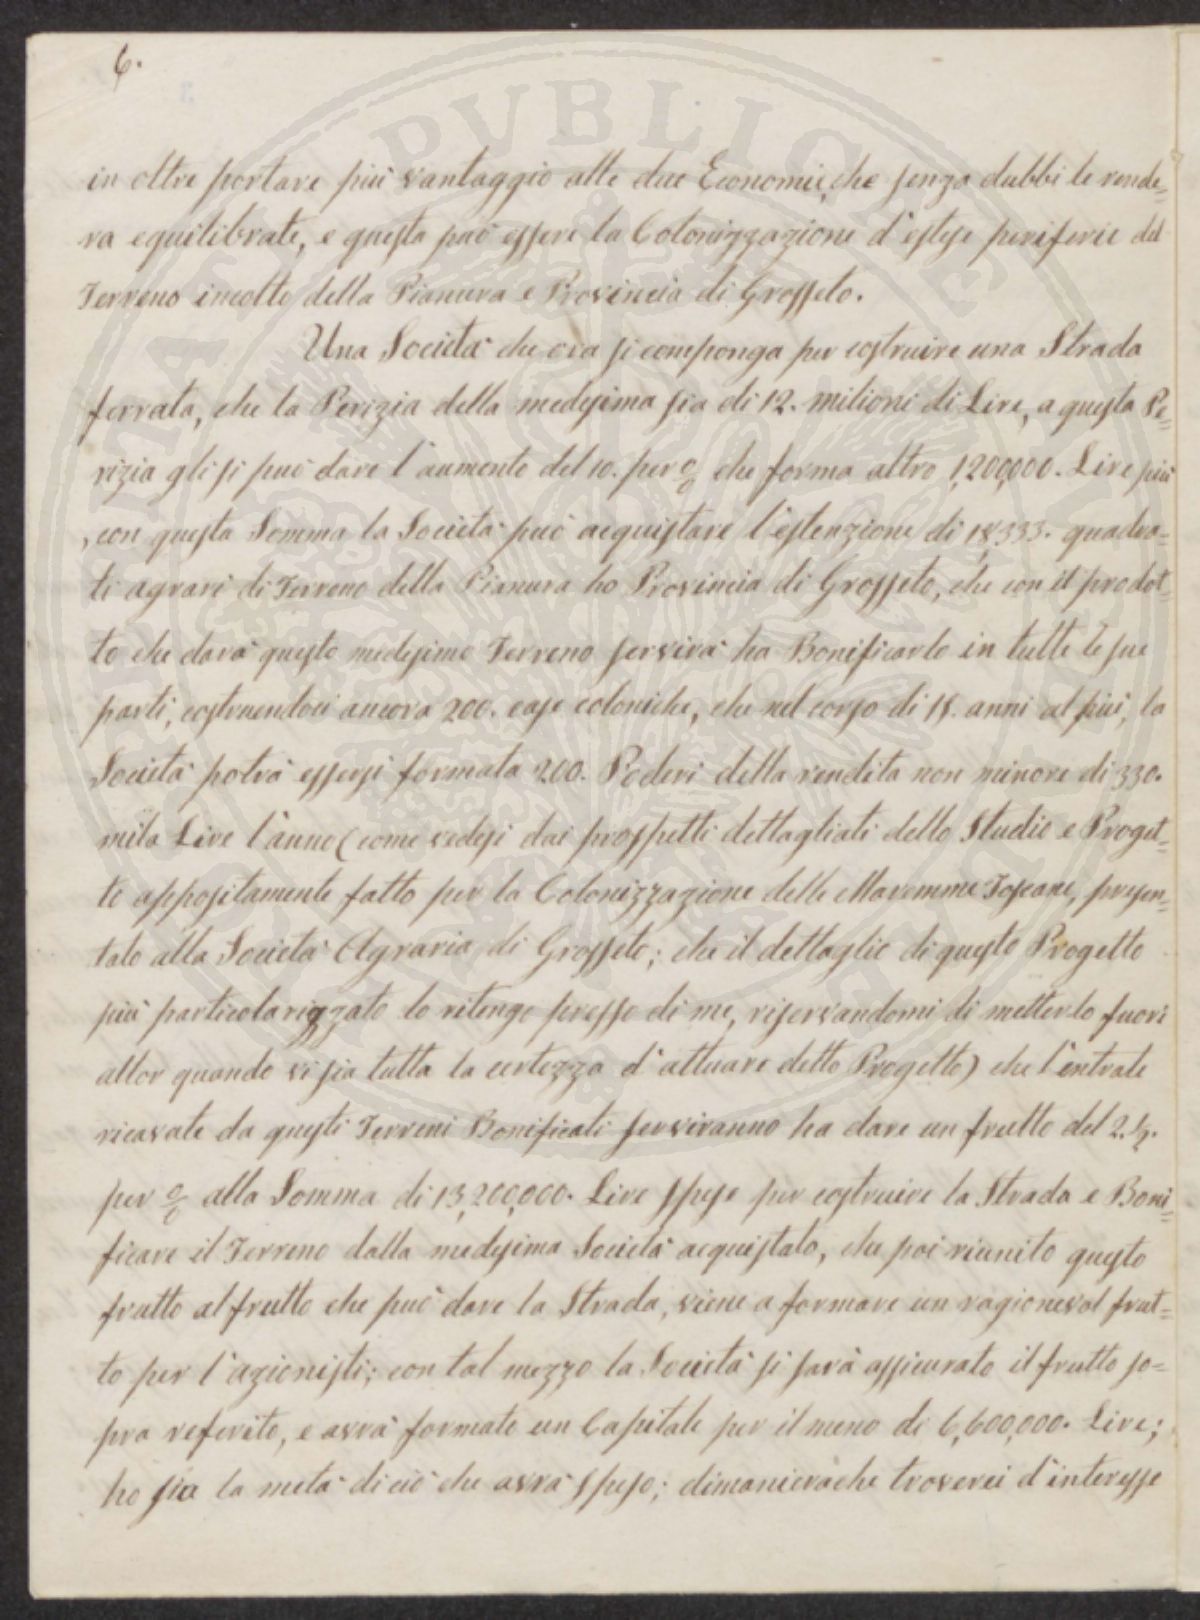 6.
in oltre portare più vantaggio alle due Economie, che senza dubbi le rende=
ra equilibrate, e questa può essere la Colonizzazione d'estese periferie del
Terreno incolto della Pianura e Provincia di Grosseto.
Una Società che ora si componga per costruire una Strada
ferrata, che la Perizia della medesima sia di 12. milioni di Lire, a questa Pe=
rizia gli si può dare l'aumento del 10. per % che forma altro 1,200,000. Lire più
, con questa Somma la Società può acquistare l'estenzione di 18,333. quadra=
ti agrari di Terreno della Pianura ho Provincia di Grosseto, che con il prodot=
to che darà questo medesimo Terreno servirà ha Bonificarlo in tutte le sue
parti, costruendoci ancora 200. case coloniche, che nel corso di 18. anni al più, la
Società potrà essersi formata 200. Poderi della rendita non minore di 330.
mila Lire l'anno (come vedesi dai prospetti dettagliati dello Studio e Proget=
to appositamente fatto per la Colonizzazione delle Maremme Toscane, presen=
tato alla Società Agraria di Grosseto; che il dettaglio di questo Progetto
più particolarizzato lo ritengo presso di me, riservandomi di metterlo fuori
allor quando vi sia tutta la certezza d'attuare detto Progetto) che l'entrate
ricavate da questi Terreni Bonificati serviranno ha dare un frutto del 2.½.
per % alla Somma di 13,200,000. Lire spese per costruire la Strada e Boni=
ficare il Terreno dalla medesima Società acquistato, che poi riunito questo
frutto al frutto che può dare la Strada, viene a formare un ragionevol frut=
to per l'azionisti; con tal mezzo la Società si sarà assicurato il frutto so=
pra referito, e avrà formato un Capitale per il meno di 6,600,000. Lire;
ho sia la metà di ciò che avrà speso; dimanierachè troverei d'interesse